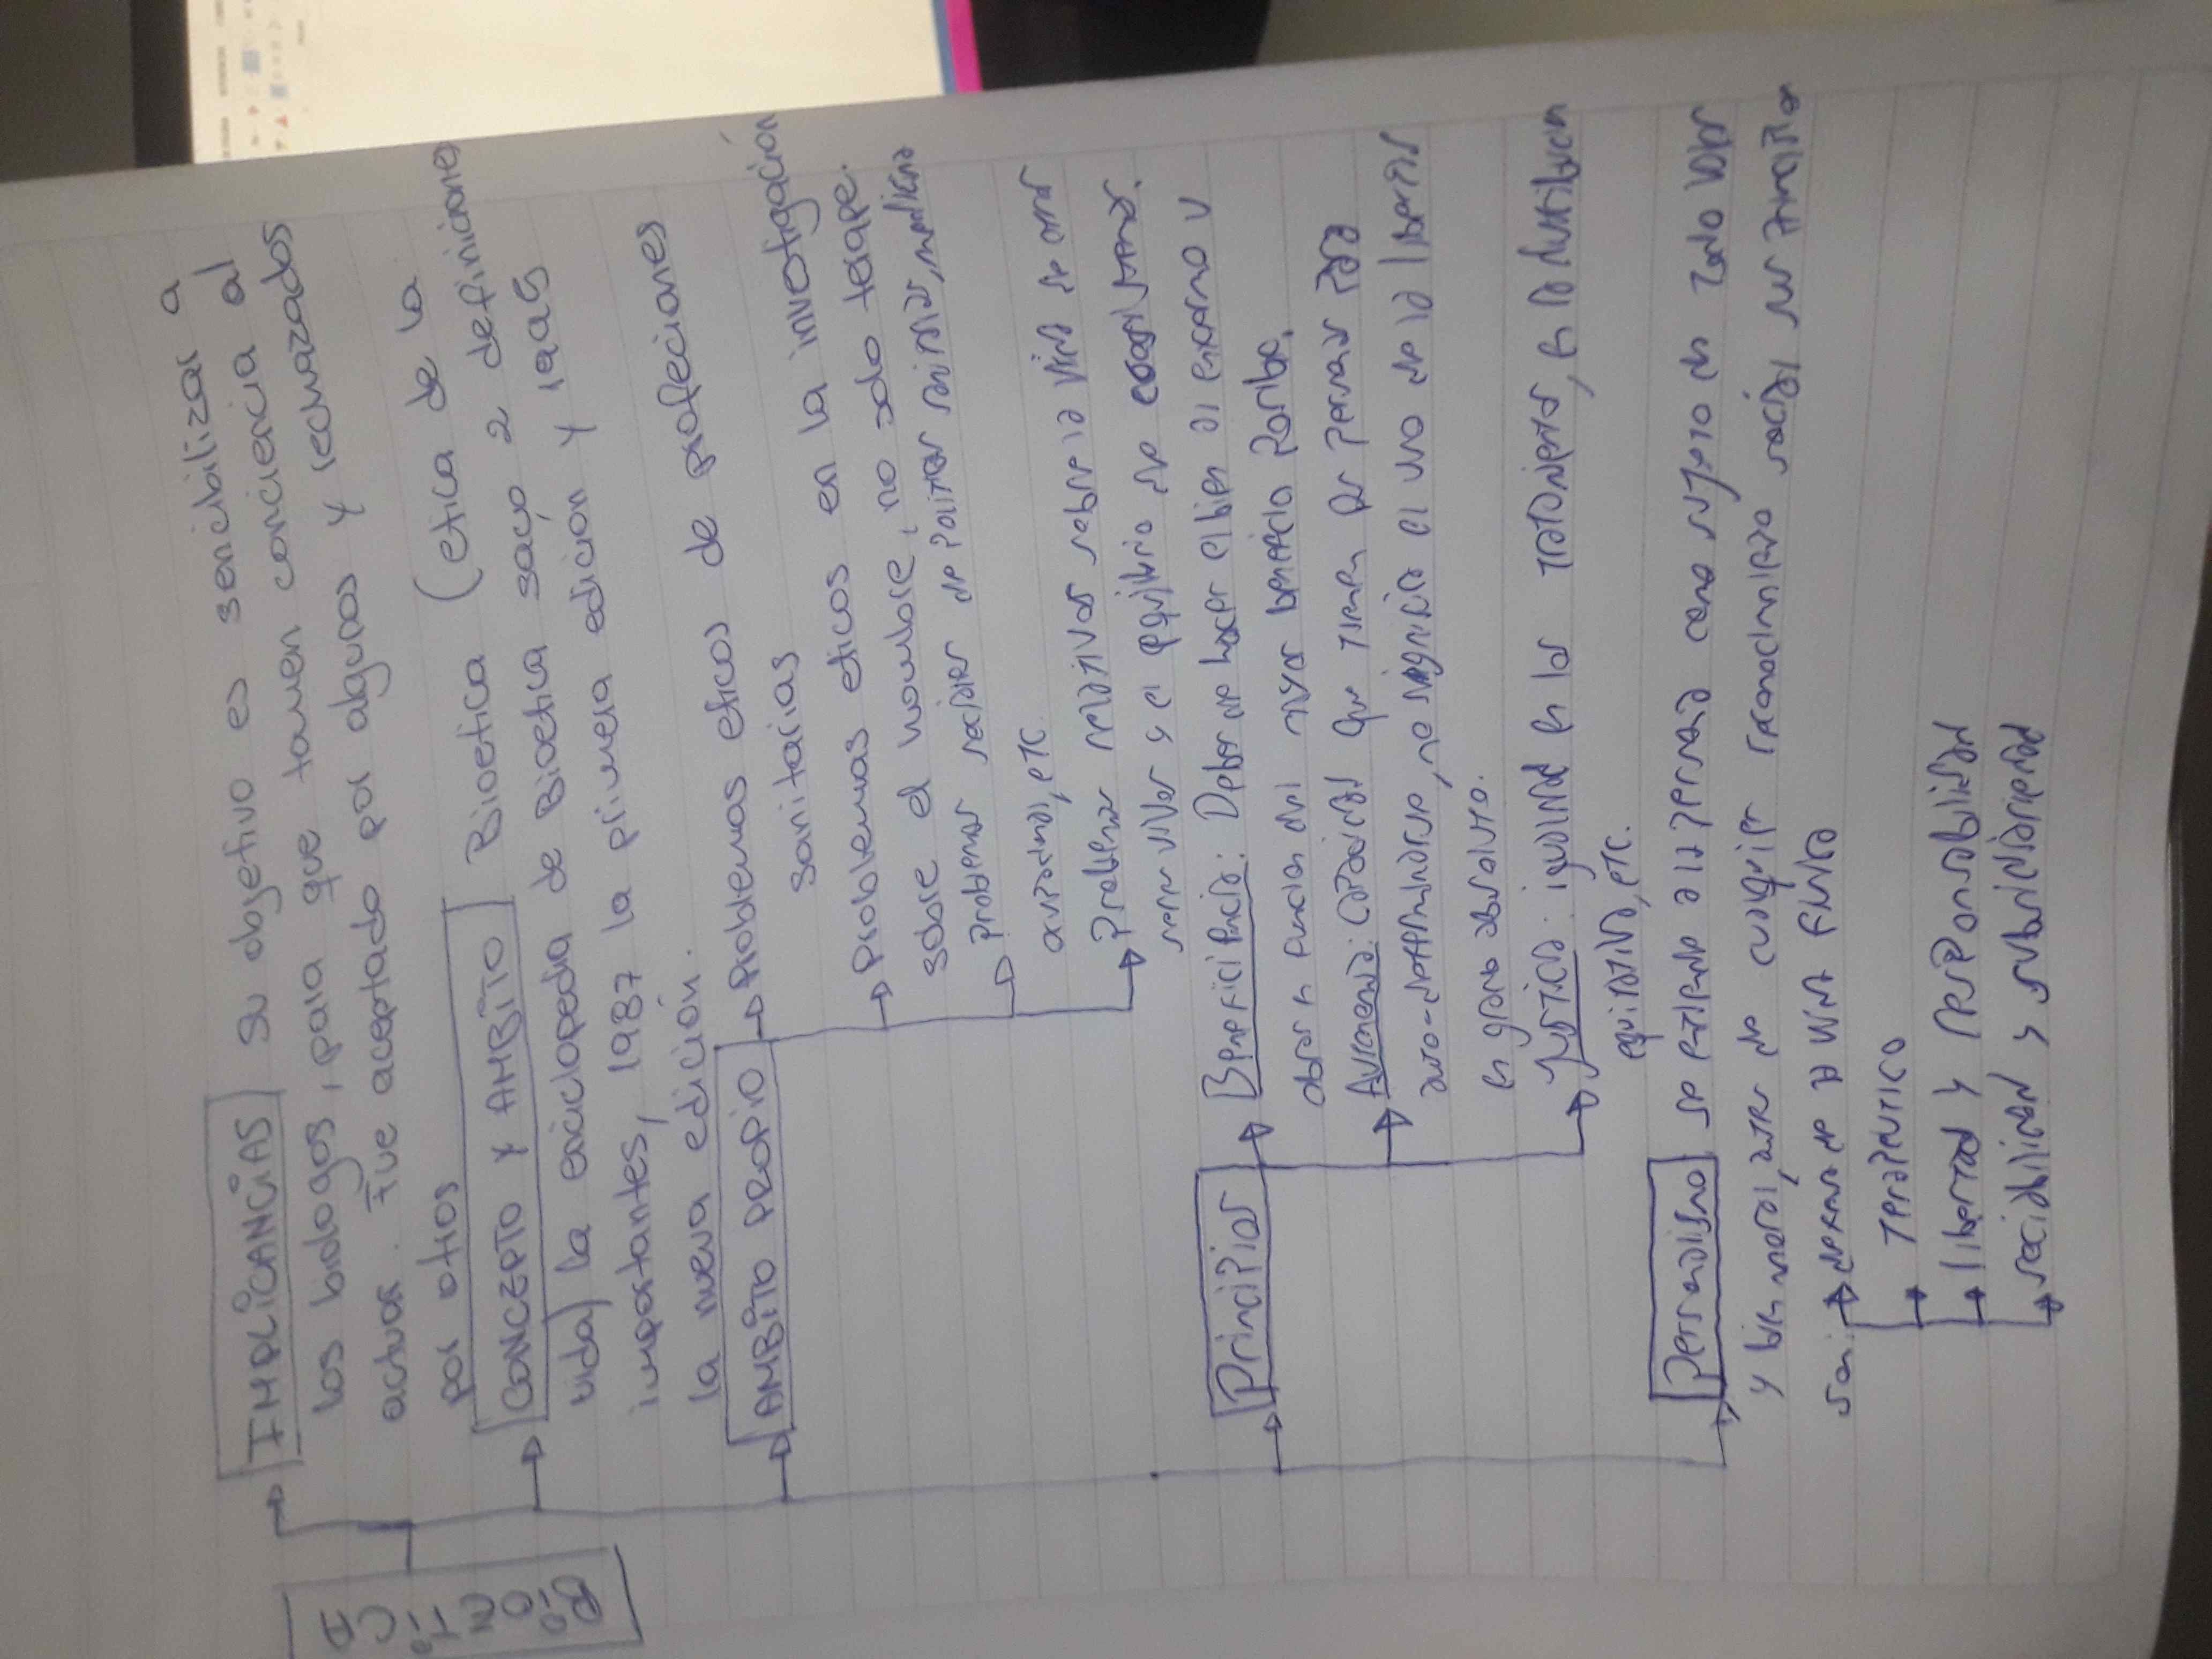 BIOETICA
IMPLICANCIAS su objetivo es sencibilizar a
los biologos, para que tomen conciencia al
actuar. Fue aceptado por algunos y rechazados
por otros
CONCEPTO Y AMBITO Bioetica (etica de la
vida) la enciclopedia de Bioetica saco 2 definiciones
importantes, 1987 la primera edicion y 1995
la nueva edición.
AMBITO PROPIO Problemas eticos de profeciones
sanitarias
Problemas eticos en la investigación
sobre el hombre, no solo terape.
problemas sociales de politicas sanitarias, medicina
etc
Problemas relativos sobre la vida de otros
seres vivos y el equilibrio de
Principios Beneficiencia: Deber de hacer el bien al enfermo y
obrar en funcion del mayor beneficio posible.
Autonomia: Capacidad que tienen las personas para
auto-determinarse, no significa el uso de la libertad
en grado absoluto.
Justicia: igualdad en los tratamientos, en la distribucion
equitativa, etc.
Personalismo se entiende a la persona como sujeto de todo valor
y bien moral, antes de cualquier reconocimiento social
defensa de la vida fisica
Terapeutico
libertad y responsabilidad
socialidad y subsidiariedad